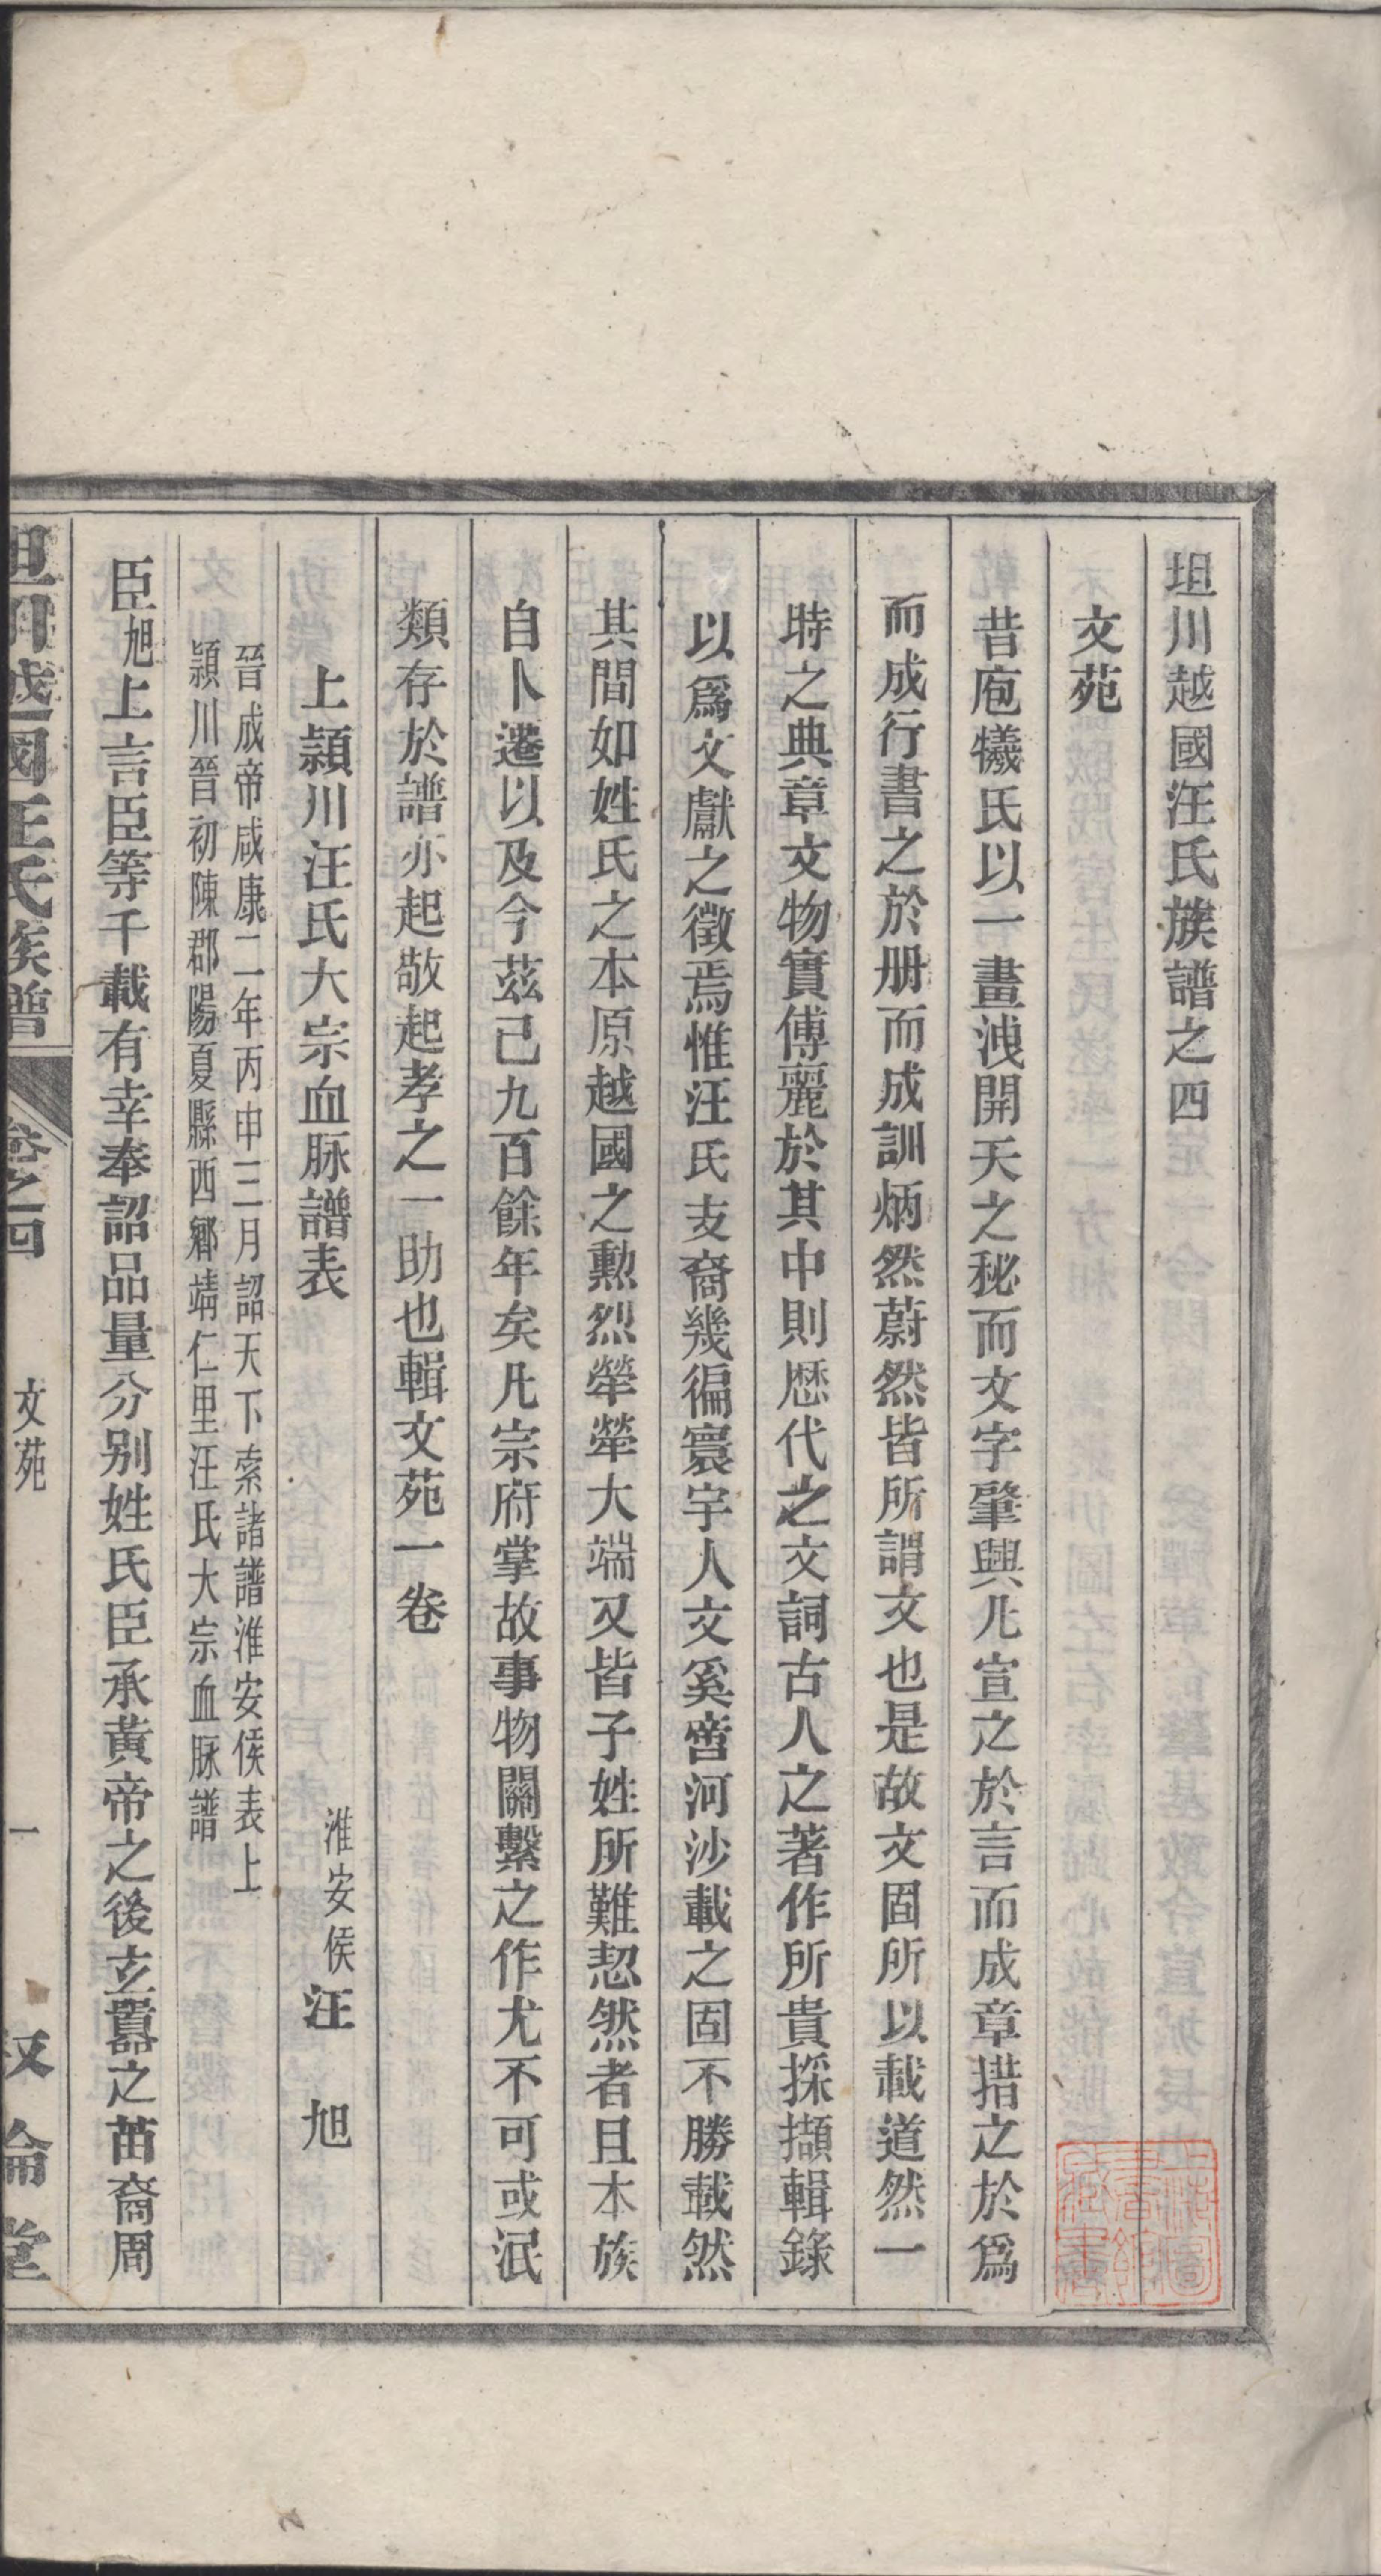 坦川越國汪氏族譜之四
文苑
昔庖犧氏以一畫洩開天之秘而文字肇興凡宣之於言而成章措之於爲
而成行書之於册而成訓炳然蔚然皆所謂文也是故文固所以載道然一
時之典章文物實傅麗於其中則歷代之文詞古人之著作所貴採擷輯錄
以爲文獻之徵焉惟汪氏支裔幾徧寰宇人文奚啻河沙載之固不勝載然
其間如姓氏之本原越國之勲烈犖犖大端又皆子姓所難恝然者且本族
自卜遷以及今茲已九百餘年矣凡宗府掌故事物關繫之作尤不可或泯
類存於譜亦起敬起孝之一助也輯文苑一卷
上潁川汪氏大宗血脉譜表
淮安侯汪　旭
晉成帝咸康二年丙申三月詔天下索諸譜淮安侯表上
潁川晉初陳郡陽夏縣西鄉靖仁里汪氏大宗血脉譜
臣旭上言臣等千載有幸奉詔品量分别姓氏臣承黃帝之後玄囂之苗裔周
坦川越國汪氏族譜
卷之四
文苑
一
叙倫堂